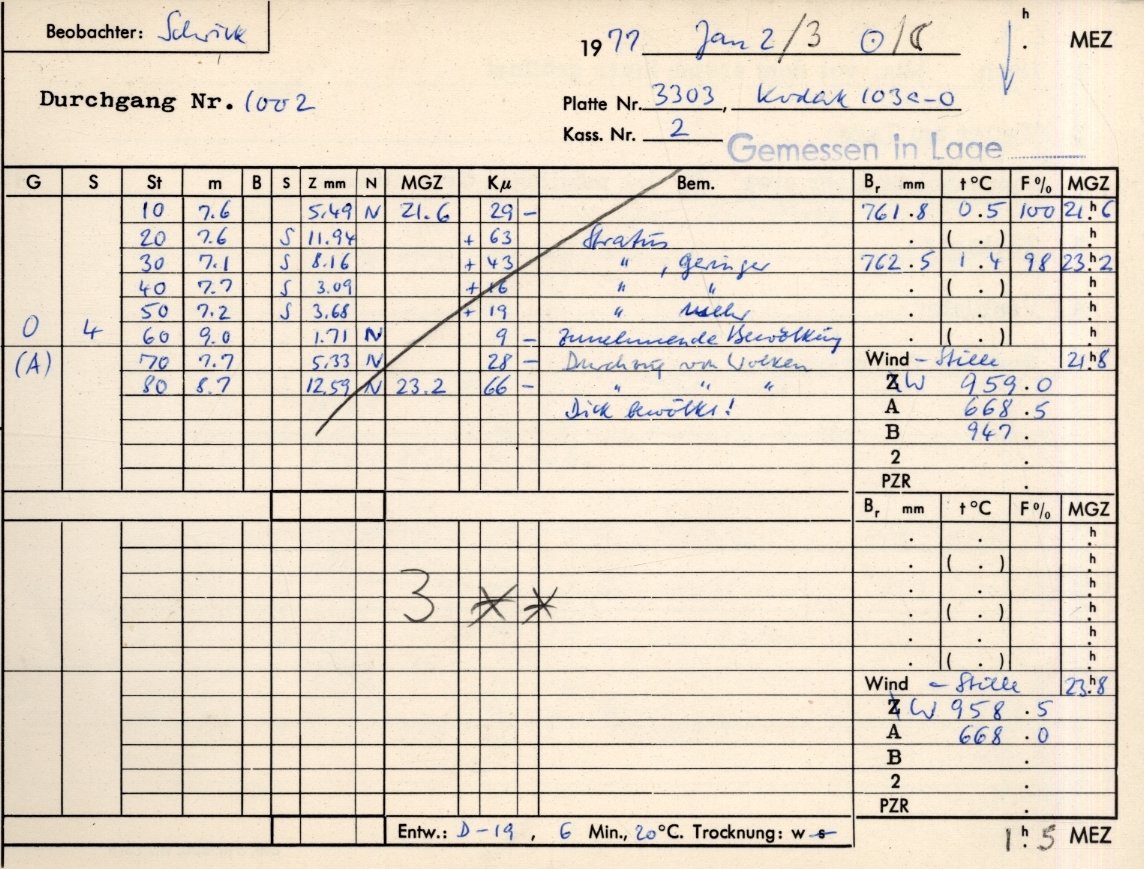 Beobachter: Schrick
1977 Jan 2/3 ⊙/☾ h . MEZ
Durchgang Nr. 1002
Platte Nr. 3303, Kodak 103a-O
Kass. Nr. 2
Gemessen in Lage
G S St m B S Z mm N MGZ Kμ Bem. Br mm t °C F % MGZ
10 7.6 5.49 N 21.6 29 - 761.8 0.5 100 21h.6
20 7.6 S 11.94 + 63 Stratus . ( . ) h.
30 7.1 S 8.16 + 43 " , geringer 762.5 1.4 98 23h.2
40 7.7 S 3.09 + 16 " " . ( . ) h.
50 7.2 S 3.68 + 19 " . . h.
0 4 60 9.0 1.71 N 9 - zunehmende Bewölkung . ( . ) h.
(A) 70 7.7 5.33 N 28 - Durchzug von Wolken Wind - Stille 21h.8
80 8.7 12.59 N 23.2 66 - " " " Z W 959.0
Dick bewölkt! A 668.5
B 947.
2 .
PZR .
Br mm t °C F % MGZ
. . h.
. ( . ) h.
. . h.
3 ** . ( . ) h.
. . h.
. ( . ) h.
Wind - Stille 23h.8
Z W 958.5
A 668.0
B .
2 .
PZR .
Entw.: D-19, 6 Min., 20°C. Trocknung: w s
1h.5 MEZ